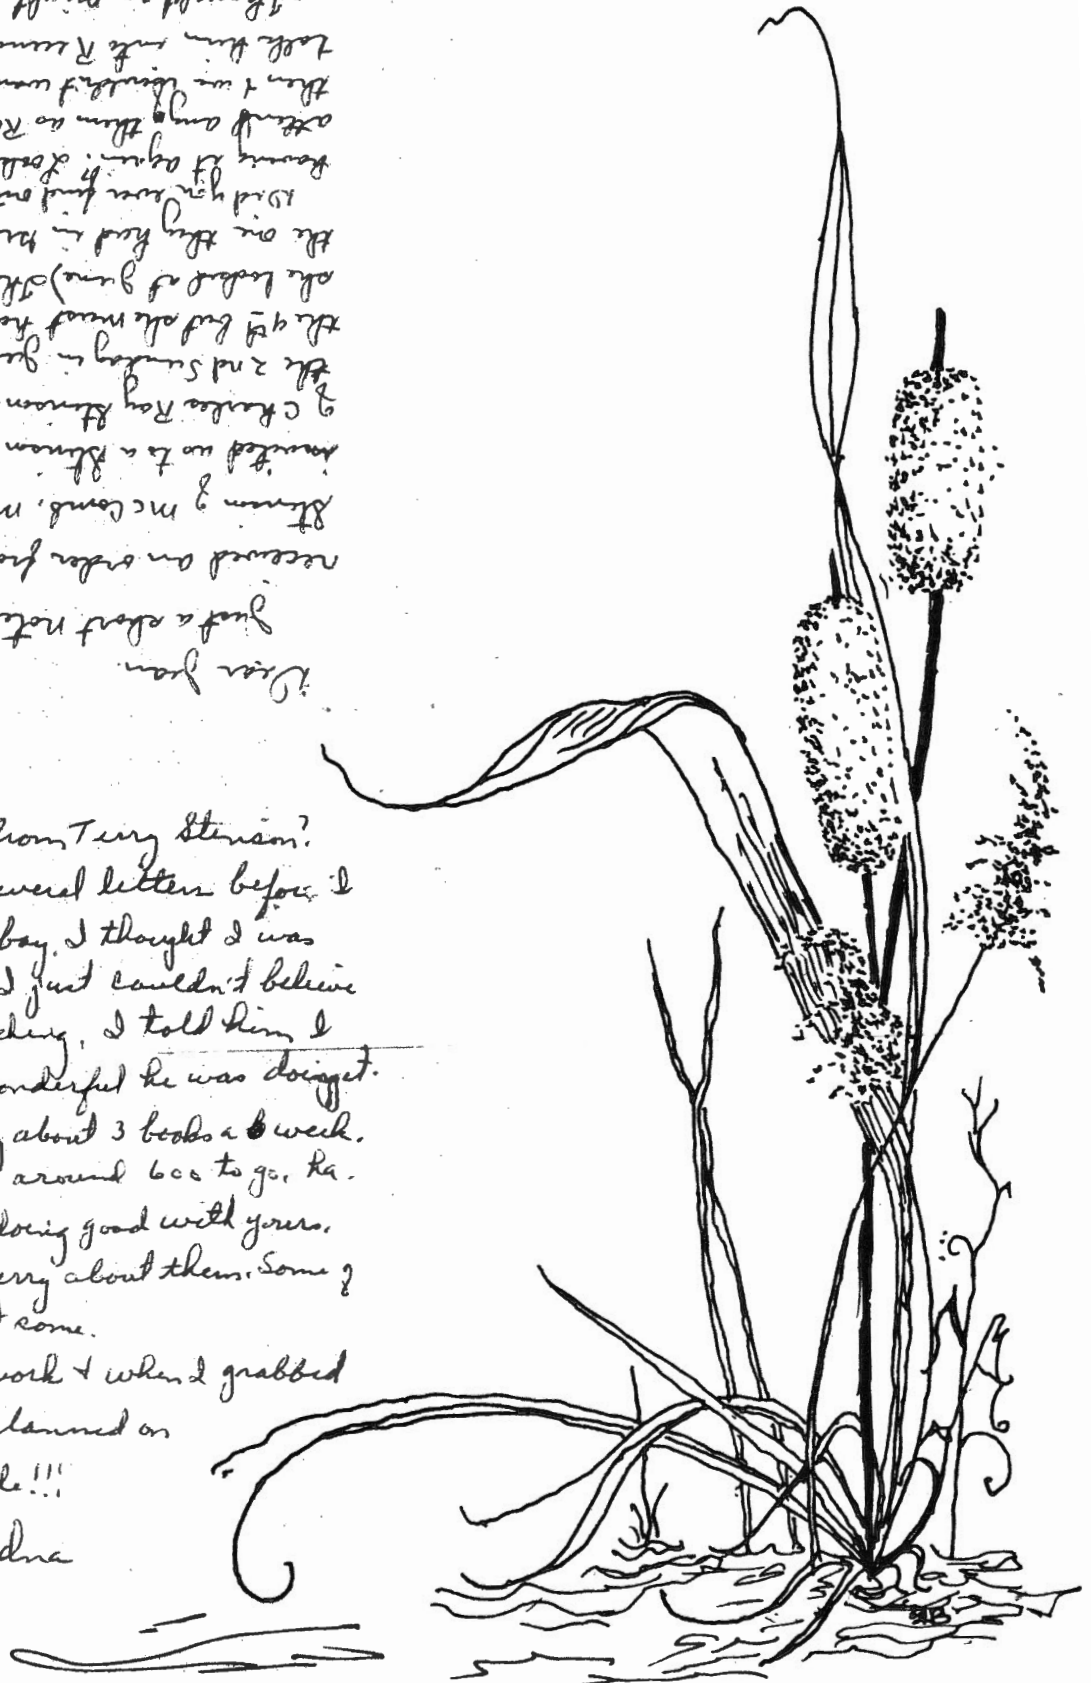 Dear Jean.
Just a short note
received an order fro
Stinson of McComb, M
invited us to a Stinson
of Charles Ray Stinson
the 2nd Sunday in Ju
the 9th but she must ha
she looked at June) Th
the one they had in
Did you ever find ou
having it again? Look
attend any of them as Ro
then & we wouldn't wan
talk him into
rom Terry Stinson?
everal letters before I
boy, I thought I was
I just couldn't believe
ching, I told him I
onderful he was doing it.
g about 3 books a week.
around 600 to go, ha.
doing good with yours.
erry about them. Some of
t some.
work & when I grabbed
lanned on
le!!!
dna